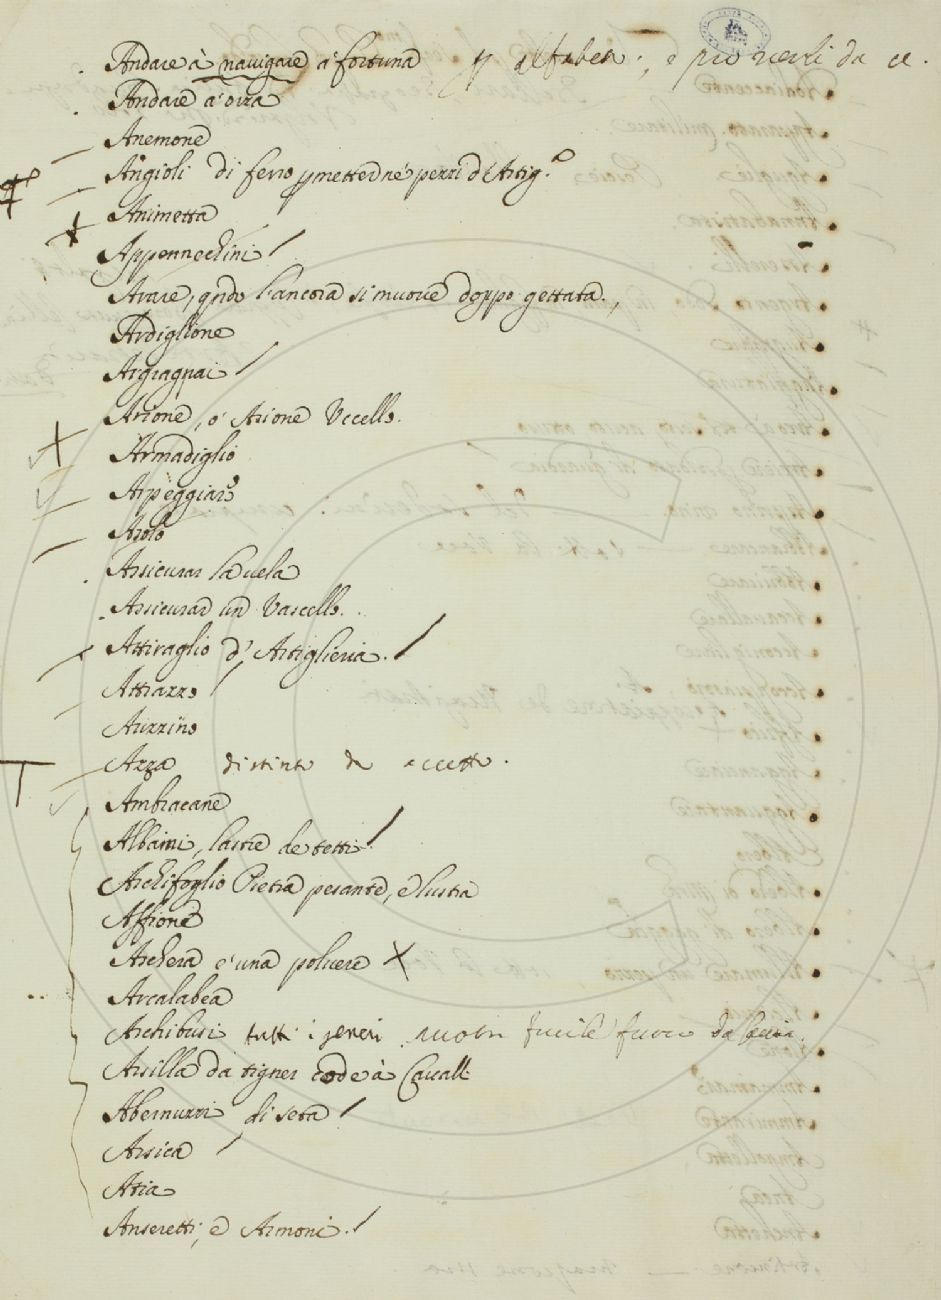 Andare à navigare à fortuna p alfabeta, e più verbi da ce.
Andare à orza
Anemone
Angioli di ferro p metterne' pezzi d'Artig.a
Animetta
Appennechini
Arare, qndo l'ancora si muove doppo gettata.,
Ardiglione
Argiagnai
Arione, o' Asione Uccello.
Armadiglio
Arpeggiare
Asolo
Assicurar la vela
Assicurar un Vascello.
Attiraglio d'Artiglieria.
Attrazzo
Auzzino
Azza distinta da accetta.
Ambracane
Albaini, lastre de tetti
Archifoglio Pietra pesante, e lustra
Affione
Archera e' una polvere
Arcalabea
Archibusi tutti i generi fucile fuori da
Arsilla da tigner code à Cavalli
Abernuzzi di seta
Arsica
Atia
Anseretti, e Armoni.